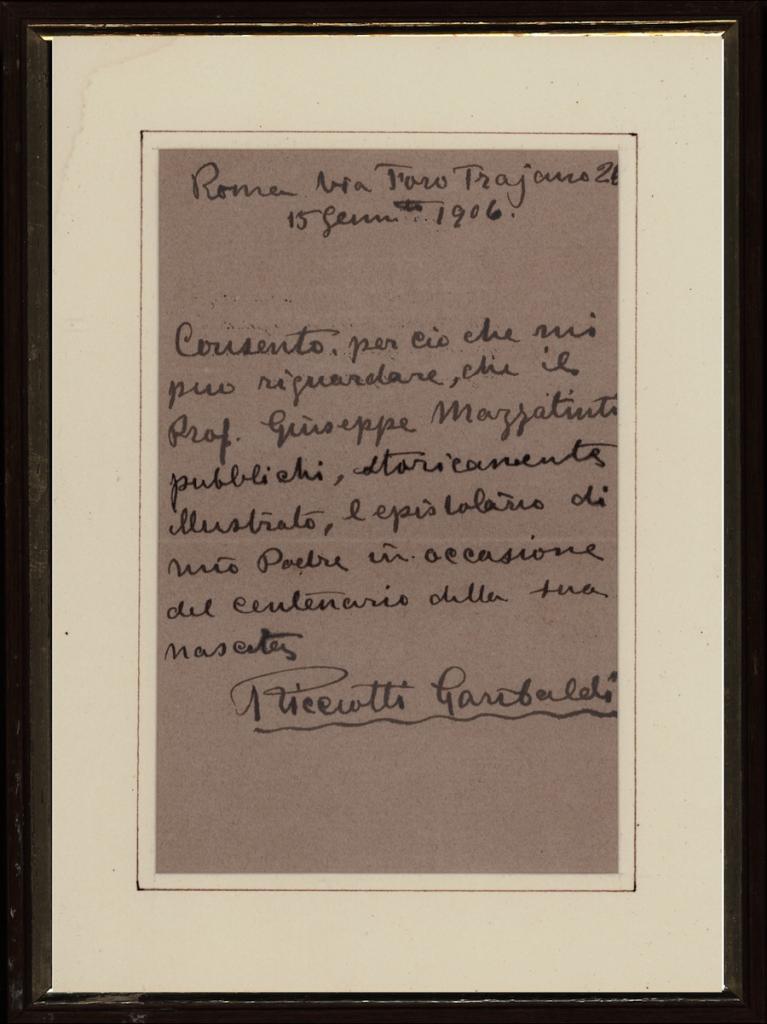 Roma Via Foro Trajano 2
15 Genn 1906.
Consento. per cio che mi
puo riguardare, che il
Prof. Giuseppe Mazzatinti
pubblichi, storicamente
illustrato, l epistolario di
mio Padre in occasione
del centenario della sua
nascita
Ricciotti Garibaldi